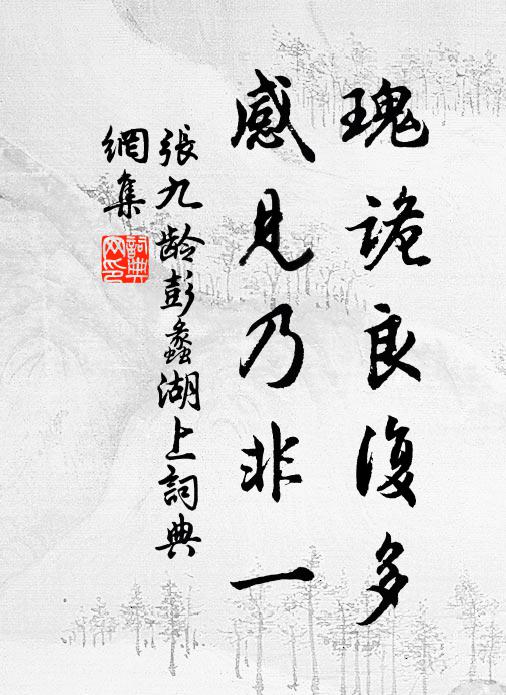 瑰詭良復多
感見乃非一
張九龄彭蠡湖上詞典
網集
詞典網印